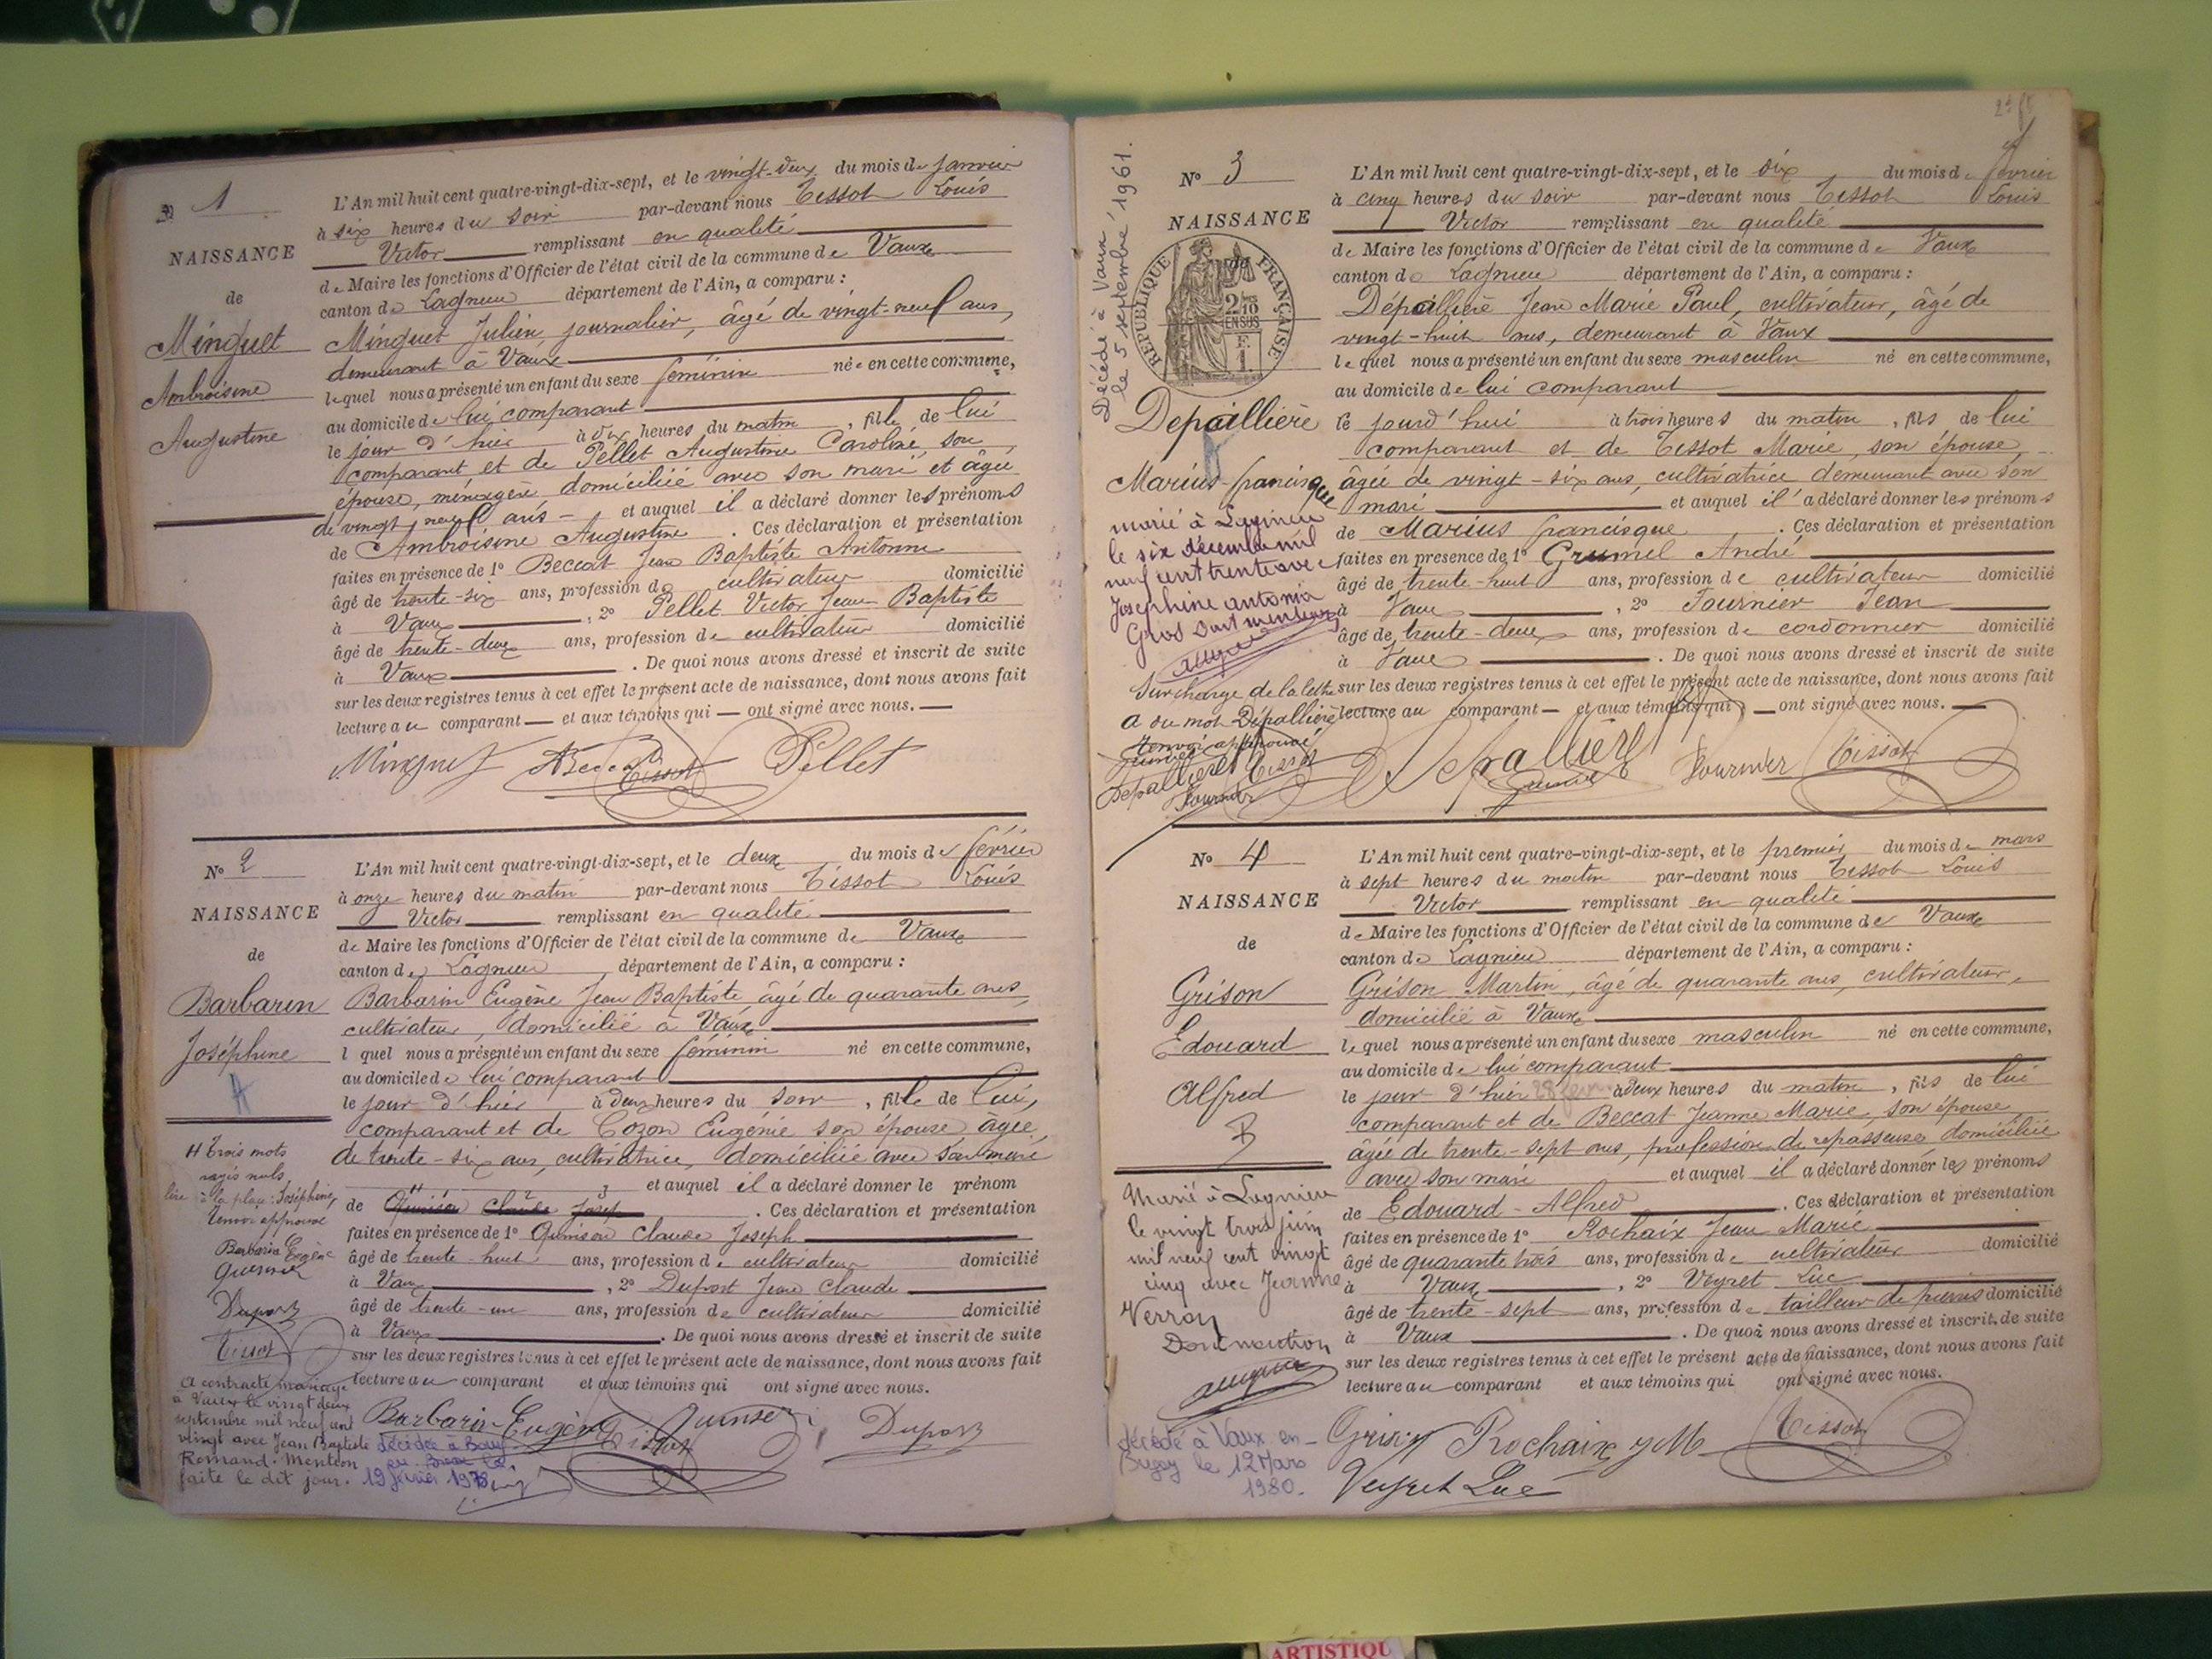 N° 1
NAISSANCE
de
Minguet
Ambroisine
Augustine
L'An mil huit cent quatre-vingt-dix-sept, et le vingt-deux du mois de janvier
à six heures du soir par-devant nous Tissot Louis
Victor remplissant en qualité
de Maire les fonctions d'Officier de l'état civil de la commune de Vaux
canton de Lagnieu département de l'Ain, a comparu :
Minguet Julien, journalier, âgé de vingt-neuf ans,
demeurant à Vaux
lequel nous a présenté un enfant du sexe féminin née en cette commune,
au domicile de lui comparant
le jour d'hier à dix heures du matin, fille de lui
comparant et de Pellet Augustine Caroline, son
épouse, ménagère domiciliée avec son mari et âgée
de vingt neuf ans — et auquel il a déclaré donner les prénoms
de Ambroisine Augustine. Ces déclaration et présentation
faites en présence de 1° Beccat Jean Baptiste Antonin
âgé de trente-six ans, profession de cultivateur domicilié
à Vaux, 2° Pellet Victor Jean Baptiste
âgé de trente-deux ans, profession de cultivateur domicilié
à Vaux. De quoi nous avons dressé et inscrit de suite
sur les deux registres tenus à cet effet le présent acte de naissance, dont nous avons fait
lecture au comparant — et aux témoins qui — ont signé avec nous. —
Minguet Beccat Tissot Pellet
N° 2
NAISSANCE
de
Barbarin
Joséphine
A
L'An mil huit cent quatre-vingt-dix-sept, et le deux du mois de février
à onze heures du matin par-devant nous Tissot Louis
Victor remplissant en qualité
de Maire les fonctions d'Officier de l'état civil de la commune de Vaux
canton de Lagnieu département de l'Ain, a comparu :
Barbarin Eugène Jean Baptiste âgé de quarante ans,
cultivateur, domicilié à Vaux
lequel nous a présenté un enfant du sexe féminin né en cette commune,
au domicile de lui comparant
le jour d'hier à deux heures du soir, fille de lui,
comparant et de Cozon Eugénie son épouse âgée
de trente-six ans, cultivatrice, domiciliée avec son mari
et auquel il a déclaré donner le prénom
de Quinson Claude Josep. Ces déclaration et présentation
faites en présence de 1° Quinson Claude Joseph
âgé de trente-huit ans, profession de cultivateur domicilié
à Vaux, 2° Duport Jean Claude
âgé de trente-un ans, profession de cultivateur domicilié
à Vaux. De quoi nous avons dressé et inscrit de suite
sur les deux registres tenus à cet effet le présent acte de naissance, dont nous avons fait
lecture au comparant et aux témoins qui ont signé avec nous.
Barbarin Eugène Tissot Quinson Duport
Trois mots
rayés nuls
lire à la place : Joséphine,
renvoi approuvé
Barbarin Eugène
Quinson
Duport
Tissot
A contracté mariage
à Vaux le vingt deux
septembre mil neuf cent
vingt avec Jean Baptiste
Remand. Mention
faite le dit jour.
décédée à Bourg
en Bresse le
19 février 1978
N° 3
NAISSANCE
RÉPUBLIQUE FRANÇAISE
2/10 EN SUS
F. 1.
de
Depaillière
Marius-francisque
L'An mil huit cent quatre-vingt-dix-sept, et le dix du mois de février
à cinq heures du soir par-devant nous Tissot Louis
Victor remplissant en qualité
de Maire les fonctions d'Officier de l'état civil de la commune de Vaux
canton de Lagnieu département de l'Ain, a comparu :
Dépaillière Jean Marie Paul, cultivateur, âgé de
vingt-huit ans, demeurant à Vaux
lequel nous a présenté un enfant du sexe masculin né en cette commune,
au domicile de lui comparant
le jourd'hui à trois heures du matin, fils de lui
comparant et de Tissot Marie, son épouse,
âgée de vingt-six ans, cultivatrice demeurant avec son
mari et auquel il a déclaré donner les prénoms
de Marius francisque. Ces déclaration et présentation
faites en presence de 1° Grumel André
âgé de trente-huit ans, profession de cultivateur domicilié
à Vaux, 2° Fournier Jean
âgé de trente-deux ans, profession de cordonnier domicilié
à Vaux. De quoi nous avons dressé et inscrit de suite
sur les deux registres tenus à cet effet le présent acte de naissance, dont nous avons fait
lecture au comparant — et aux témoins qui — ont signé avec nous. —
Depallière Grumel Fournier Tissot
Décédé à Vaux
le 5 septembre 1961.
marié à Lagnieu
le six décembre mil
neuf cent trente avec
Joséphine antonia
Gros dont mention
Surcharge de la lettre
a du mot Dépallière
renvoi approuvé
Grumel
Depallière Tissot
Fournier
N° 4
NAISSANCE
de
Grison
Edouard
Alfred
B
L'An mil huit cent quatre-vingt-dix-sept, et le premier du mois de mars
à sept heures du matin par-devant nous Tissot Louis
Victor remplissant en qualité
de Maire les fonctions d'Officier de l'état civil de la commune de Vaux
canton de Lagnieu département de l'Ain, a comparu :
Grison Martin, âgé de quarante ans, cultivateur,
domicilié à Vaux
lequel nous a présenté un enfant du sexe masculin né en cette commune,
au domicile de lui comparant
le jour d'hier 28 fevr à deux heures du matin, fils de lui
comparant et de Beccat Jeanne Marie, son épouse
âgée de trente-sept ans, profession de repasseuse domiciliée
avec son mari et auquel il a déclaré donner les prénoms
de Edouard-Alfred. Ces déclaration et présentation
faites en présence de 1° Rochaix Jean Marie
âgé de quarante trois ans, profession de cultivateur domicilié
à Vaux, 2° Veyret Luc
âgé de trente-sept ans, profession de tailleur de pierres domicilié
à Vaux. De quoi nous avons dressé et inscrit de suite
sur les deux registres tenus à cet effet le présent acte de naissance, dont nous avons fait
lecture au comparant et aux témoins qui ont signé avec nous.
Grison Rochaix J M Tissot
Veyret Luc
Marié à Lagnieu
le vingt trois juin
mil neuf cent vingt
cinq avec Jeanne
Verron
Dont mention
décédé à Vaux en
Bugey le 12 Mars
1980.
ARTISTIQU